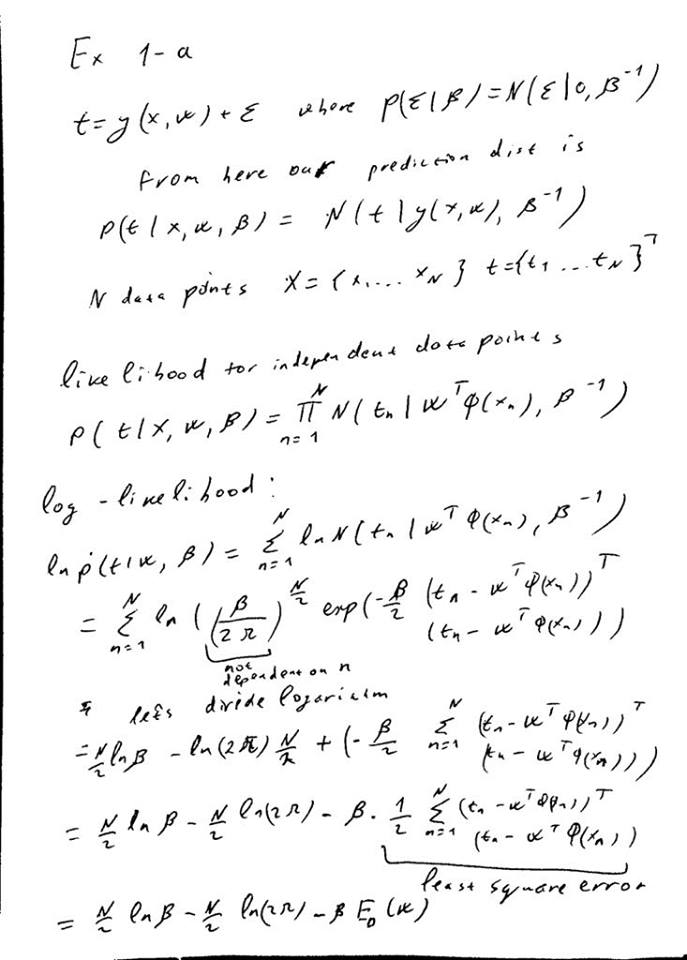 Ex 1-a
t = y(x, w) + ε where p(ε|β) = N(ε|0, β⁻¹)
from here our prediction dist is
p(t | x, w, β) = N(t | y(x, w), β⁻¹)
N data points X = {x, ... x_N} t = {t₁ ... t_N}ᵀ
likelihood for independent data points
p(t|X, w, β) = ∏_{n=1}^{N} N(t_n | wᵀφ(x_n), β⁻¹)
log - likelihood:
ln p(t|w, β) = Σ_{n=1}^{N} ln N(t_n | wᵀφ(x_n), β⁻¹)
= Σ_{n=1}^{N} ln ((β/2π)^{N/2} exp(-β/2 (t_n - wᵀφ(x_n))ᵀ
(t_n - wᵀφ(x_n)))
not
dependent on n
* lets divide logarithm
= N/2 ln β - ln(2π) N/2 + (-β/2 Σ_{n=1}^{N} (t_n - wᵀφ(x_n))ᵀ
(t_n - wᵀφ(x_n)))
= N/2 ln β - N/2 ln(2π) - β · 1/2 Σ_{n=1}^{N} (t_n - wᵀφ(x_n))ᵀ
(t_n - wᵀφ(x_n))
least square error
= N/2 ln β - N/2 ln(2π) - β E_D(w)